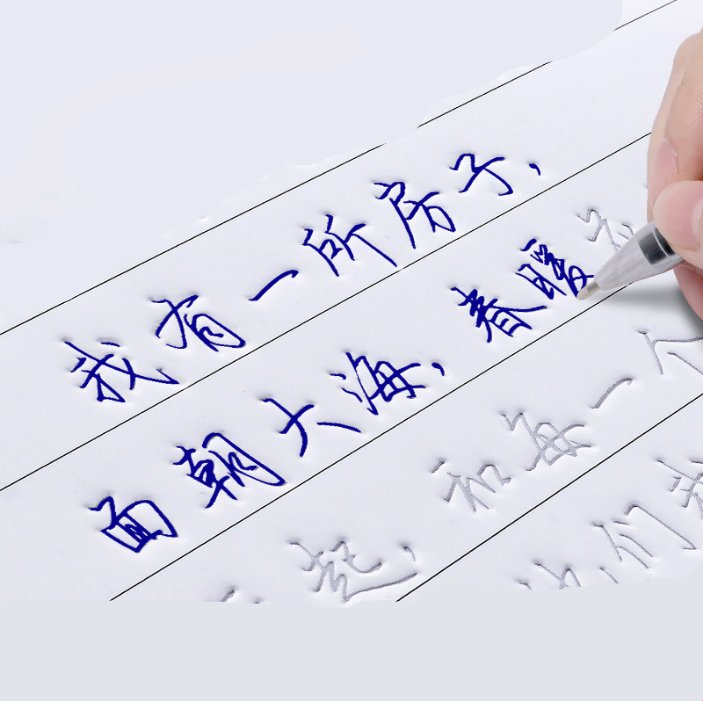 我有一所房子,
面朝大海,春暖
起,和每一个
他们我